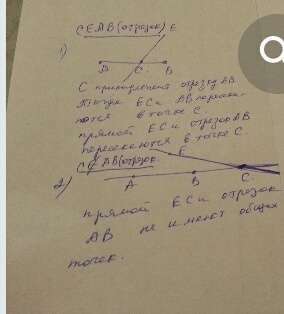 C∈AB(отрезок)
E
1)
C
B
С принадлежит отрезку AB
EC и AB пересе-
в точке C.
прямой EC и отрезок AB
пересекаются в точке C.
C∉AB(отрезок
E
2)
A
B
C
прямой EC и отрезок
AB не имеют общих
точек.